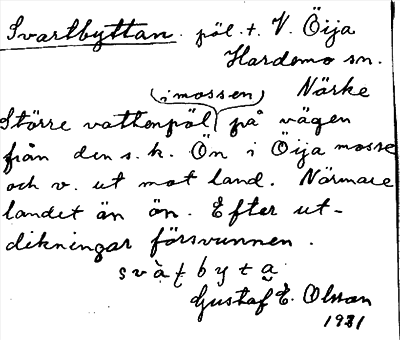 Svartbyttan. pöl. t. V. Öija
Hardemo sn.
Närke
(i mossen)
Större vattenpöl på vägen
från den s. k. Ön i Öija mosse
och v. ut mot land. Närmare
landet än ön. Efter ut-
dikningar försvunnen.
svàt byta
Gustaf E. Olsson
1931